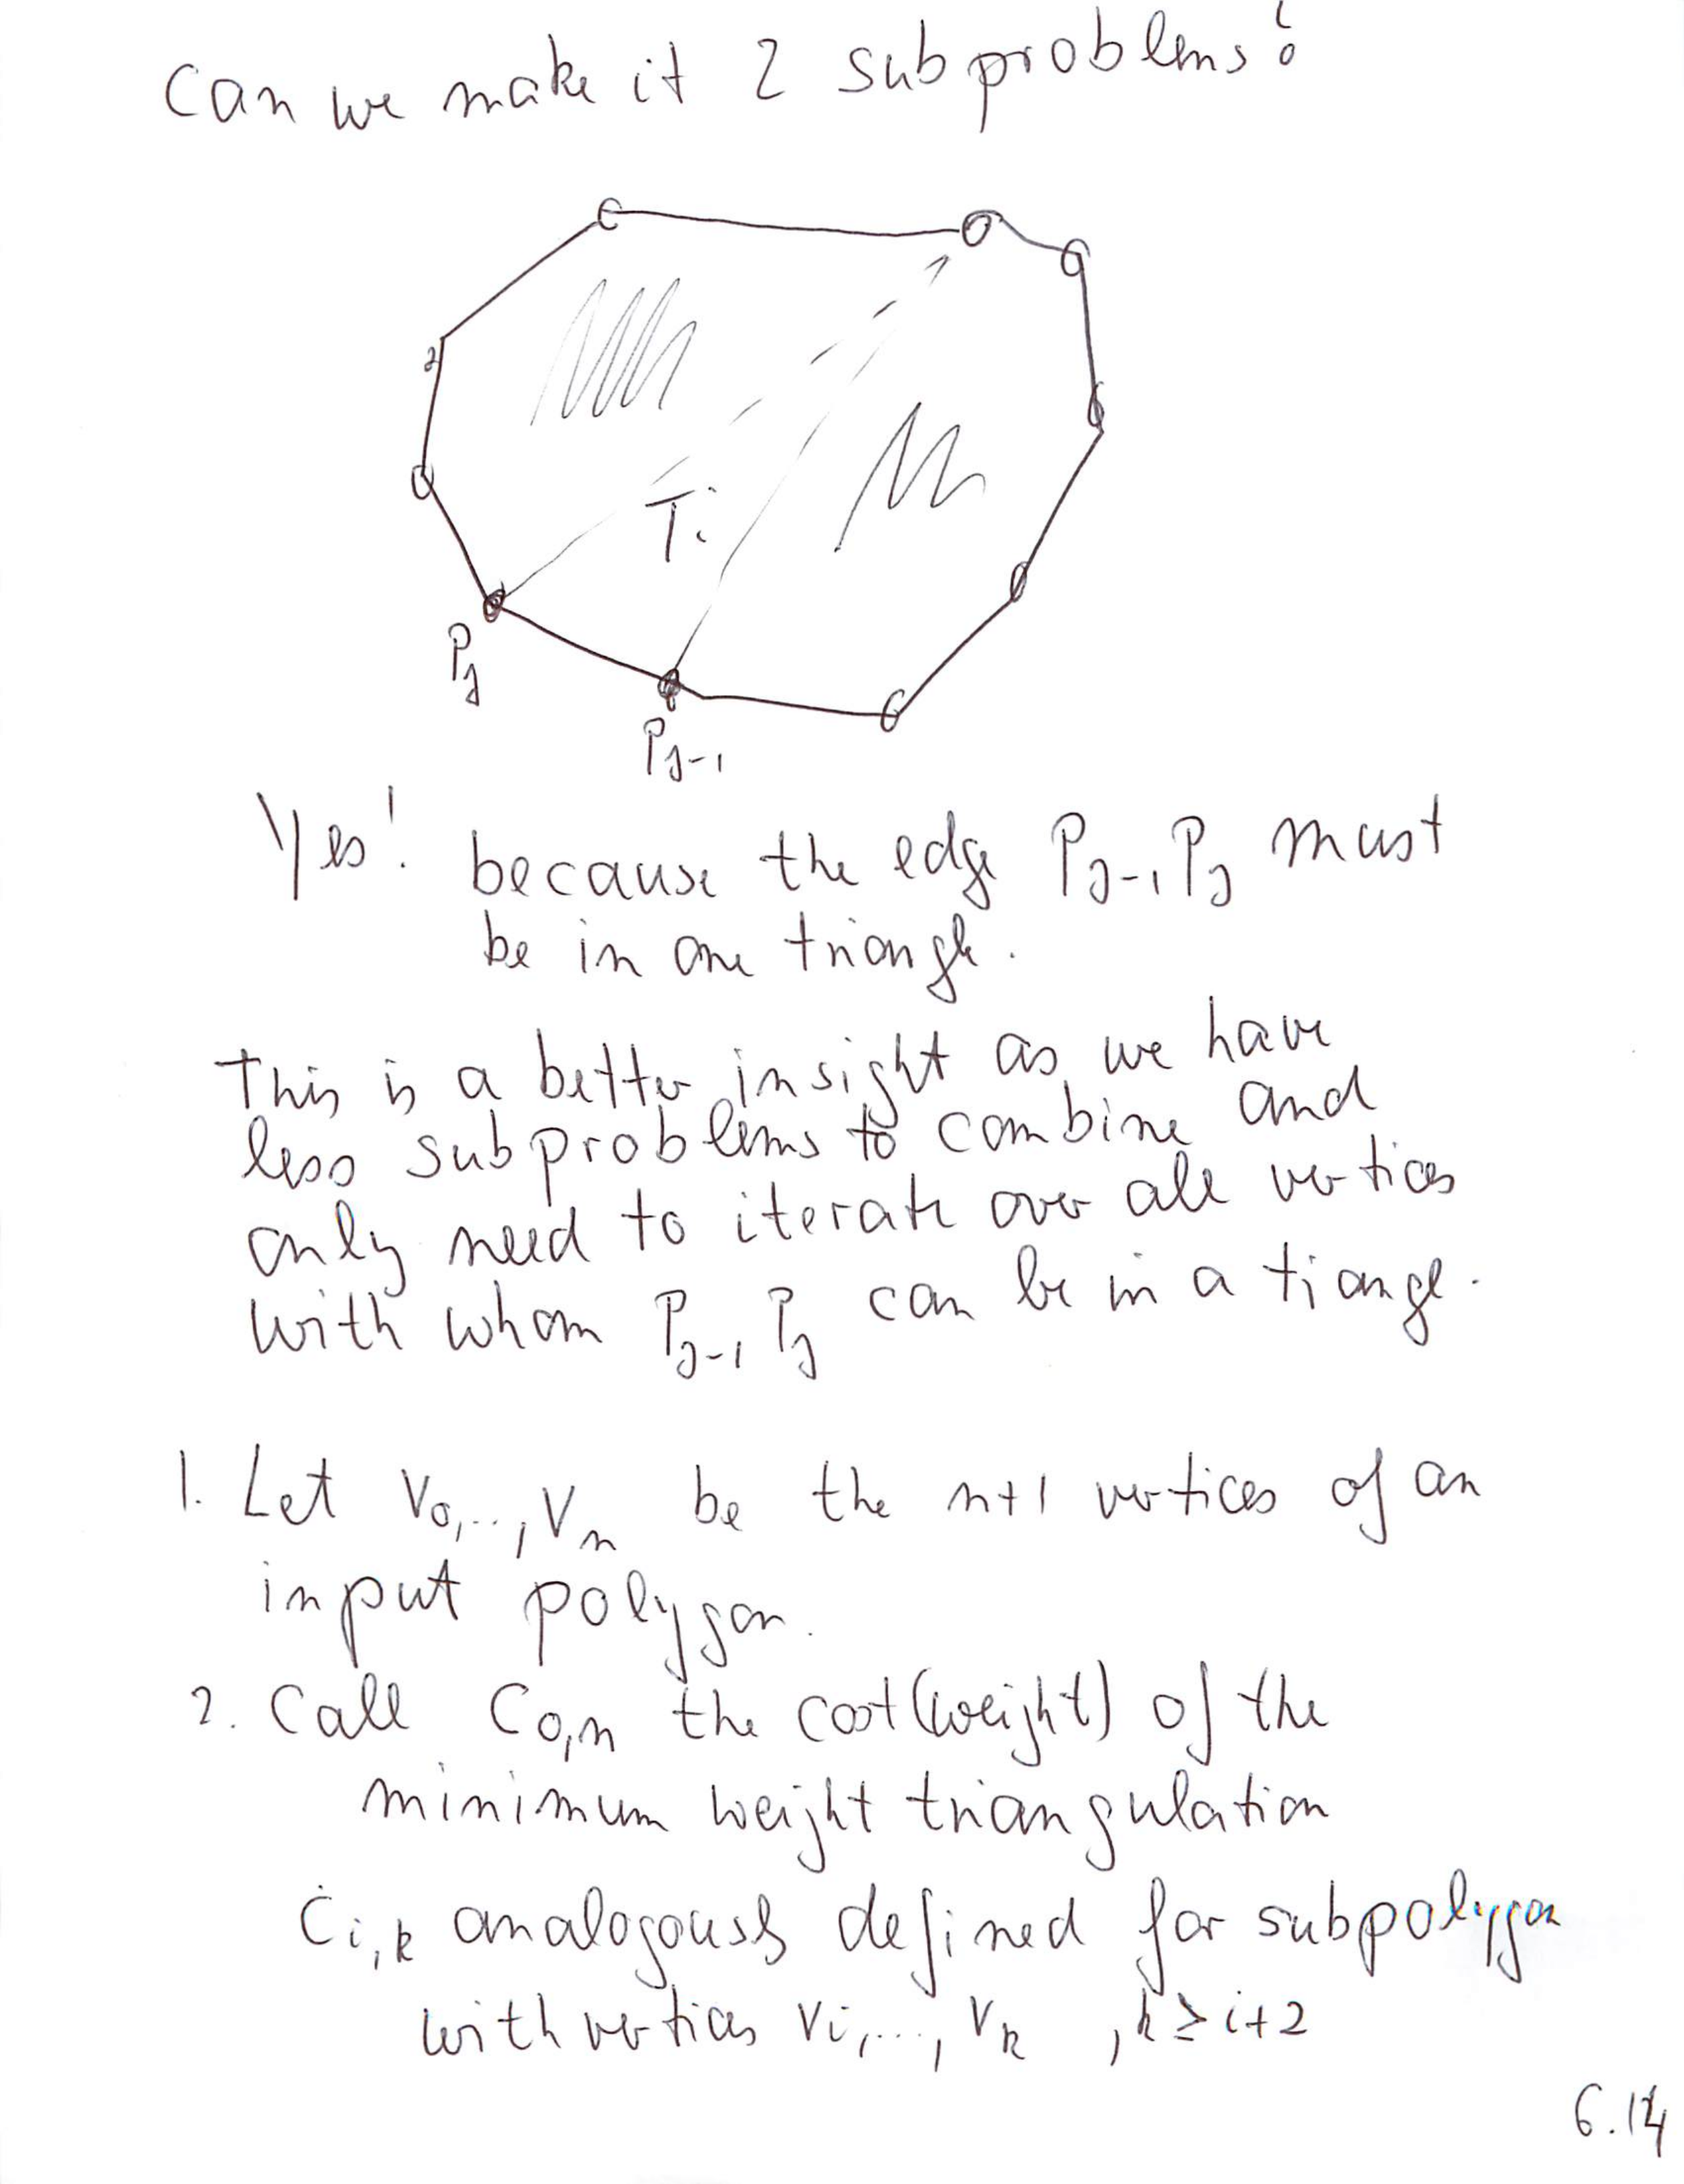 Can we make it 2 subproblems?
Ti
Pj
Pj-1
Yes! because the edge Pj-1 Pj must
be in one triangle.
This is a better insight as we have
less subproblems to combine and
only need to iterate over all vertices
with whom Pj-1 Pj can be in a tiangl.
1. Let v0,..,vn be the n+1 vertices of an
input polygon.
2. Call C0,n the cost (weight) of the
minimum weight triangulation
Ci,k analogously defined for subpolygon
with vertices vi,...,vk , k ≥ i+2
6.14